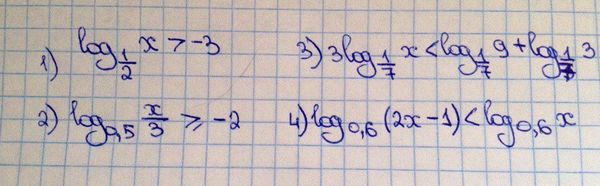 1) log_{1/2} x > -3
3) 3log_{1/7} x < log_{1/7} 9 + log_{1/7} 3
2) log_{0,5} x/3 ⩾ -2
4) log_{0,6} (2x-1) < log_{0,6} x